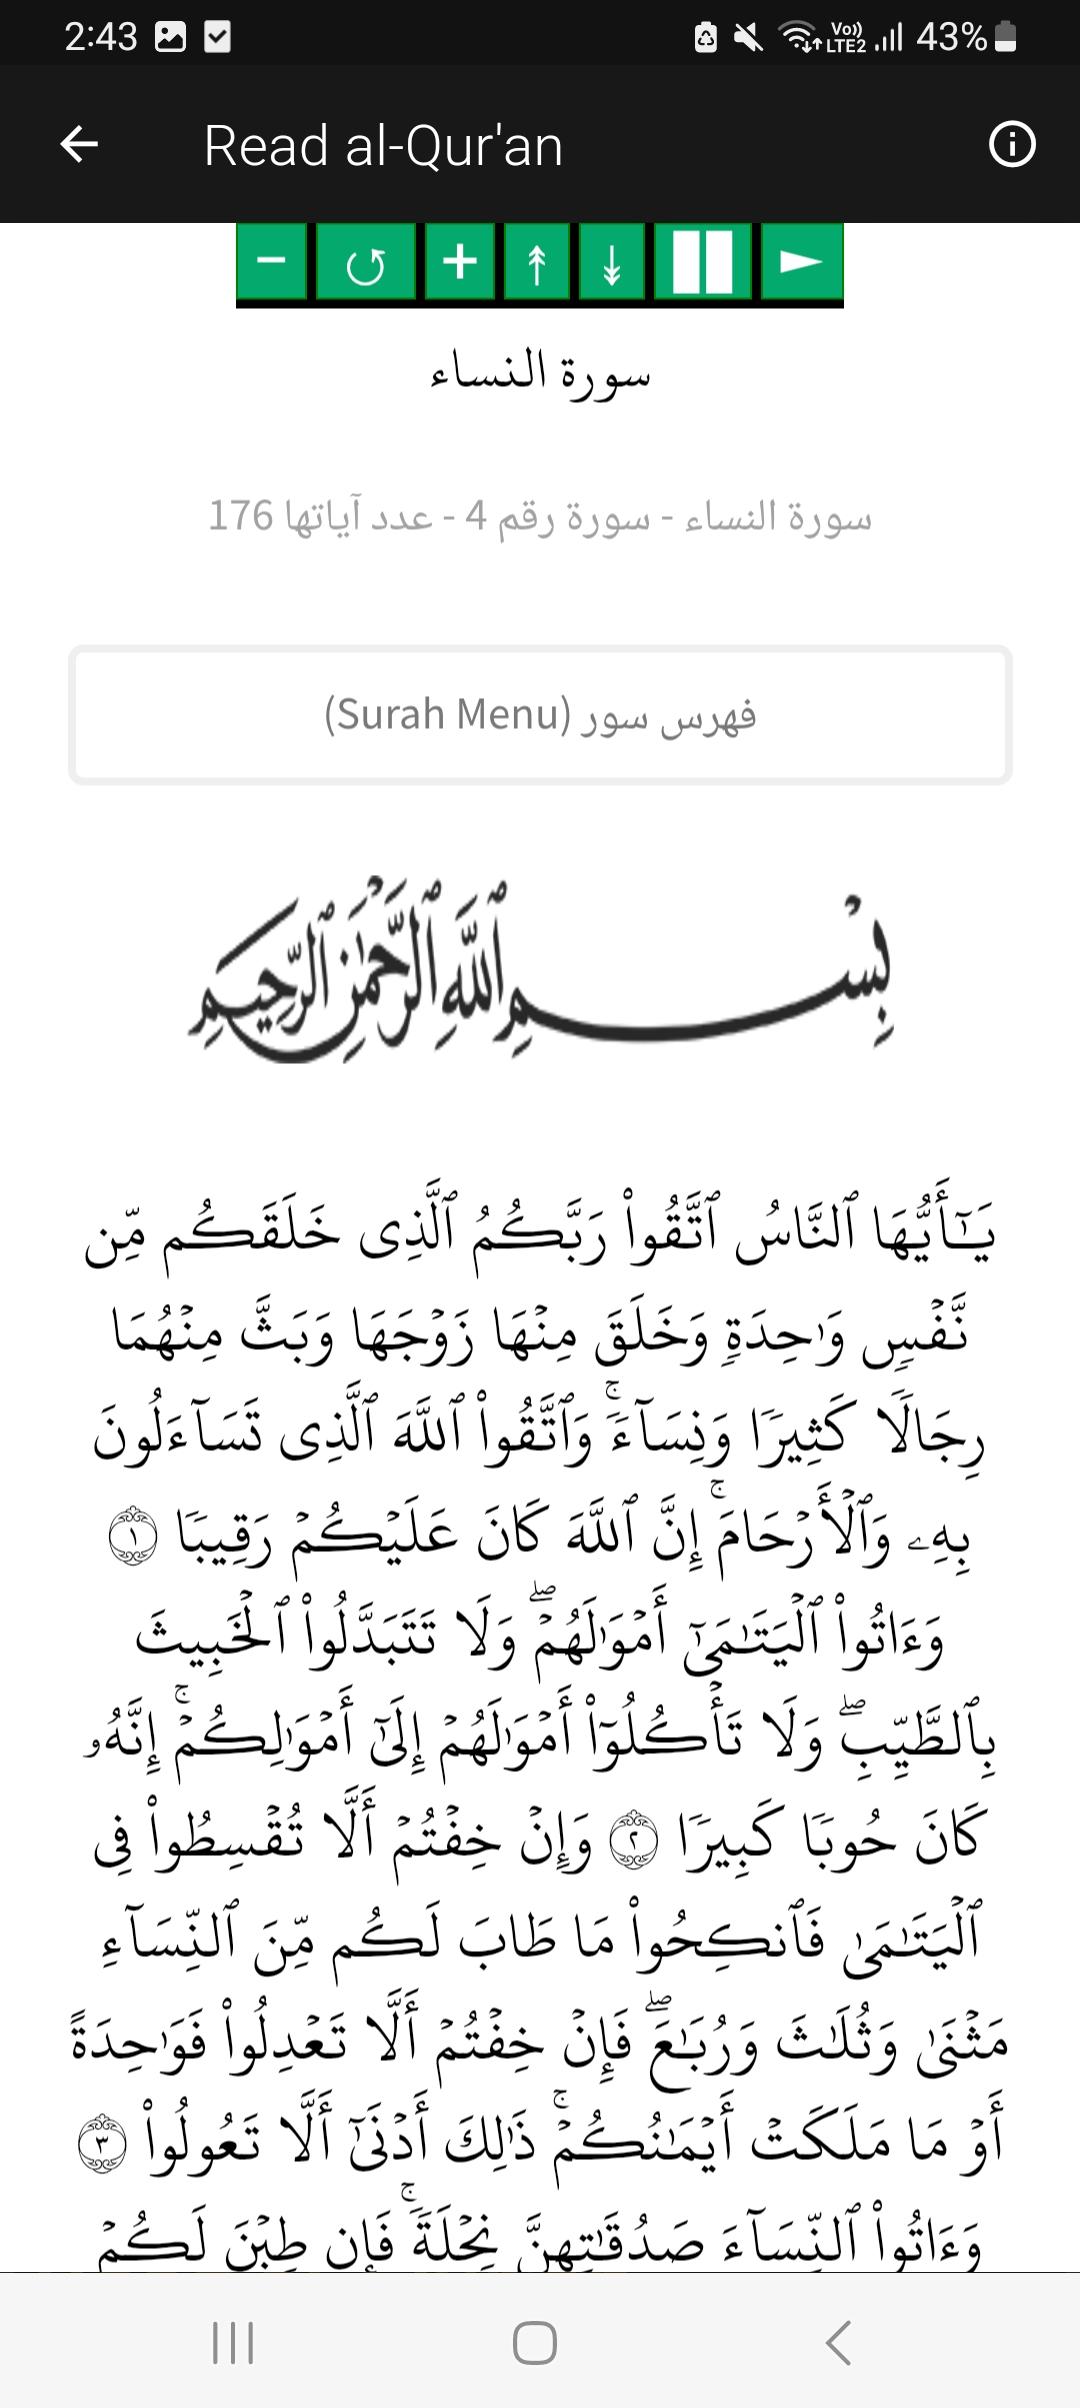 2:43
Vo))
LTE2
43%
Read al-Qur'an
سورة النساء
سورة النساء - سورة رقم 4 - عدد آياتها 176
فهرس سور (Surah Menu)
بِسْمِ ٱللَّهِ ٱلرَّحْمَٰنِ ٱلرَّحِيمِ
يَـٰٓأَيُّهَا ٱلنَّاسُ ٱتَّقُوا۟ رَبَّكُمُ ٱلَّذِى خَلَقَكُم مِّن
نَّفْسٍ وَٰحِدَةٍ وَخَلَقَ مِنْهَا زَوْجَهَا وَبَثَّ مِنْهُمَا
رِجَالًا كَثِيرًا وَنِسَآءً ۚ وَٱتَّقُوا۟ ٱللَّهَ ٱلَّذِى تَسَآءَلُونَ
بِهِۦ وَٱلْأَرْحَامَ ۚ إِنَّ ٱللَّهَ كَانَ عَلَيْكُمْ رَقِيبًا ١
وَءَاتُوا۟ ٱلْيَتَـٰمَىٰٓ أَمْوَٰلَهُمْ ۖ وَلَا تَتَبَدَّلُوا۟ ٱلْخَبِيثَ
بِٱلطَّيِّبِ ۖ وَلَا تَأْكُلُوٓا۟ أَمْوَٰلَهُمْ إِلَىٰٓ أَمْوَٰلِكُمْ ۚ إِنَّهُۥ
كَانَ حُوبًا كَبِيرًا ٢ وَإِنْ خِفْتُمْ أَلَّا تُقْسِطُوا۟ فِى
ٱلْيَتَـٰمَىٰ فَٱنكِحُوا۟ مَا طَابَ لَكُم مِّنَ ٱلنِّسَآءِ
مَثْنَىٰ وَثُلَـٰثَ وَرُبَـٰعَ ۖ فَإِنْ خِفْتُمْ أَلَّا تَعْدِلُوا۟ فَوَٰحِدَةً
أَوْ مَا مَلَكَتْ أَيْمَـٰنُكُمْ ۚ ذَٰلِكَ أَدْنَىٰٓ أَلَّا تَعُولُوا۟ ٣
وَءَاتُوا۟ ٱلنِّسَآءَ صَدُقَـٰتِهِنَّ نِحْلَةً ۚ فَإِن طِبْنَ لَكُمْ